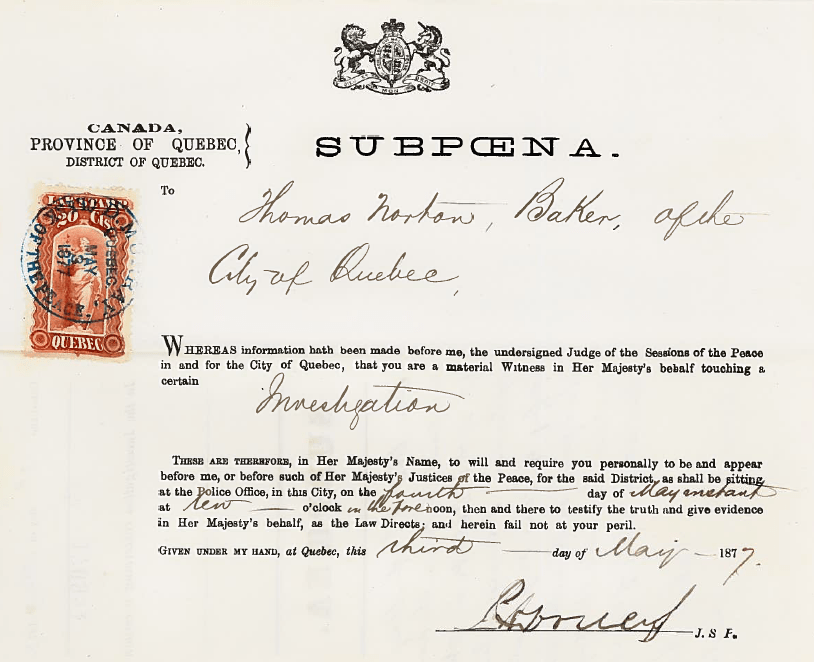 CANADA,
PROVINCE OF QUEBEC,
DISTRICT OF QUEBEC.
SUBPŒNA.
LAW STAMP
20 CTS
CLERK OF THE PEACE,
QUEBEC
MAY
3
1877
QUEBEC
To
Thomas Norton, Baker, of the
City of Quebec,
WHEREAS information hath been made before me, the undersigned Judge of the Sessions of the Peace
in and for the City of Quebec, that you are a material Witness in Her Majesty's behalf touching a
certain
Investigation
THESE ARE THEREFORE, in Her Majesty's Name, to will and require you personally to be and appear
before me, or before such of Her Majesty's Justices of the Peace, for the said District, as shall be sitting,
at the Police Office, in this City, on the fourth day of May instant
at ten o'clock in the forenoon, then and there to testify the truth and give evidence
in Her Majesty's behalf, as the Law Directs; and herein fail not at your peril.
GIVEN UNDER MY HAND, at Quebec, this third day of May 1877.
J. S P.